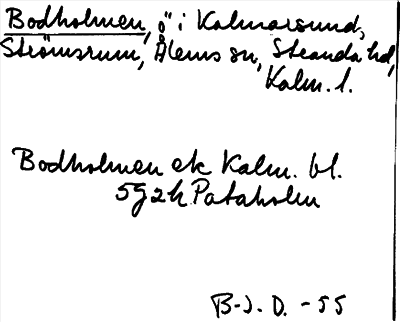 Bodholmen, ö i Kalmarsund,
Strömsrum, Ålems sn, Stranda hd,
Kalm. l.
Bodholmen ek Kalm. bl.
5g2h Pataholm
B-J. D. -55